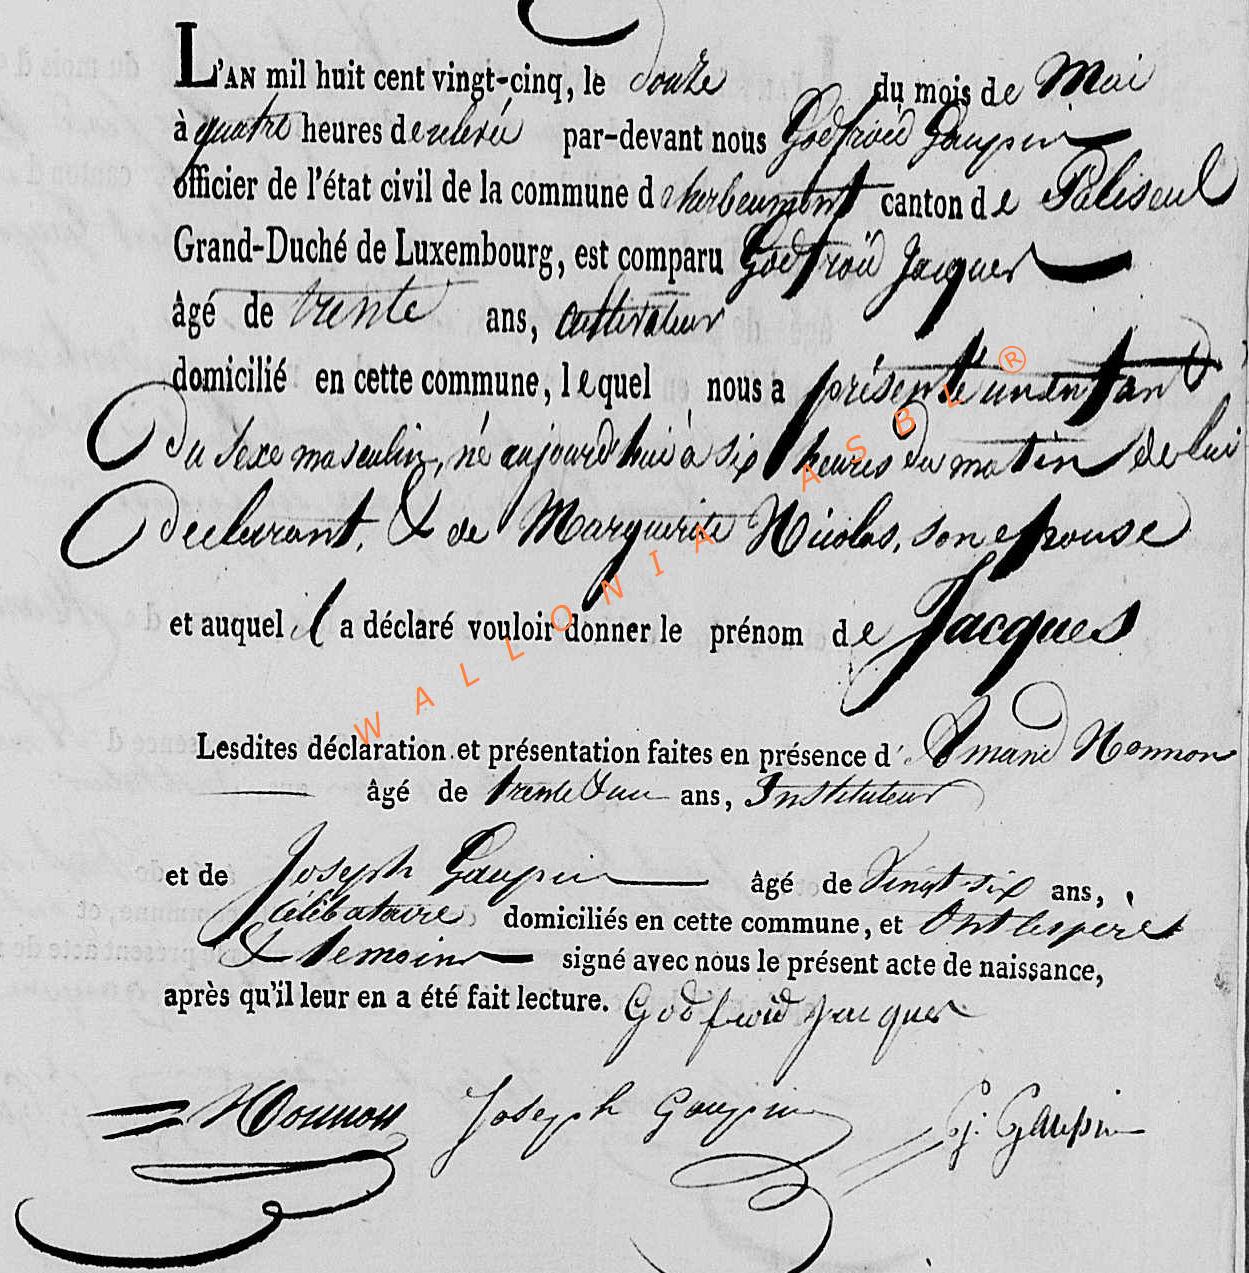 L'AN mil huit cent vingt-cinq, le douze du mois de Mai
à quatre heures de relevée par-devant nous Godfroid Gaupin
officier de l'état civil de la commune d'herbeumont canton de Paliseul
Grand-Duché de Luxembourg, est comparu Godfroid Jacques
âgé de trente ans, cultivateur
domicilié en cette commune, lequel nous a présenté un enfant
du sexe masculin, né aujourd'hui à six heures du matin de lui
declarant, & de Marguerite Nicolas, son epouse
et auquel il a déclaré vouloir donner le prénom de Jacques
Lesdites déclaration et présentation faites en présence d'Amand Monnon
âgé de trente & un ans, Instituteur
et de Joseph Gaupin âgé de vingt six ans,
célibataire domiciliés en cette commune, et ont les père
& temoins signé avec nous le présent acte de naissance,
après qu'il leur en a été fait lecture. Godfroid Jacques
Monnon Joseph Gaupin G. Gaupin
WALLONIA ASBL ®